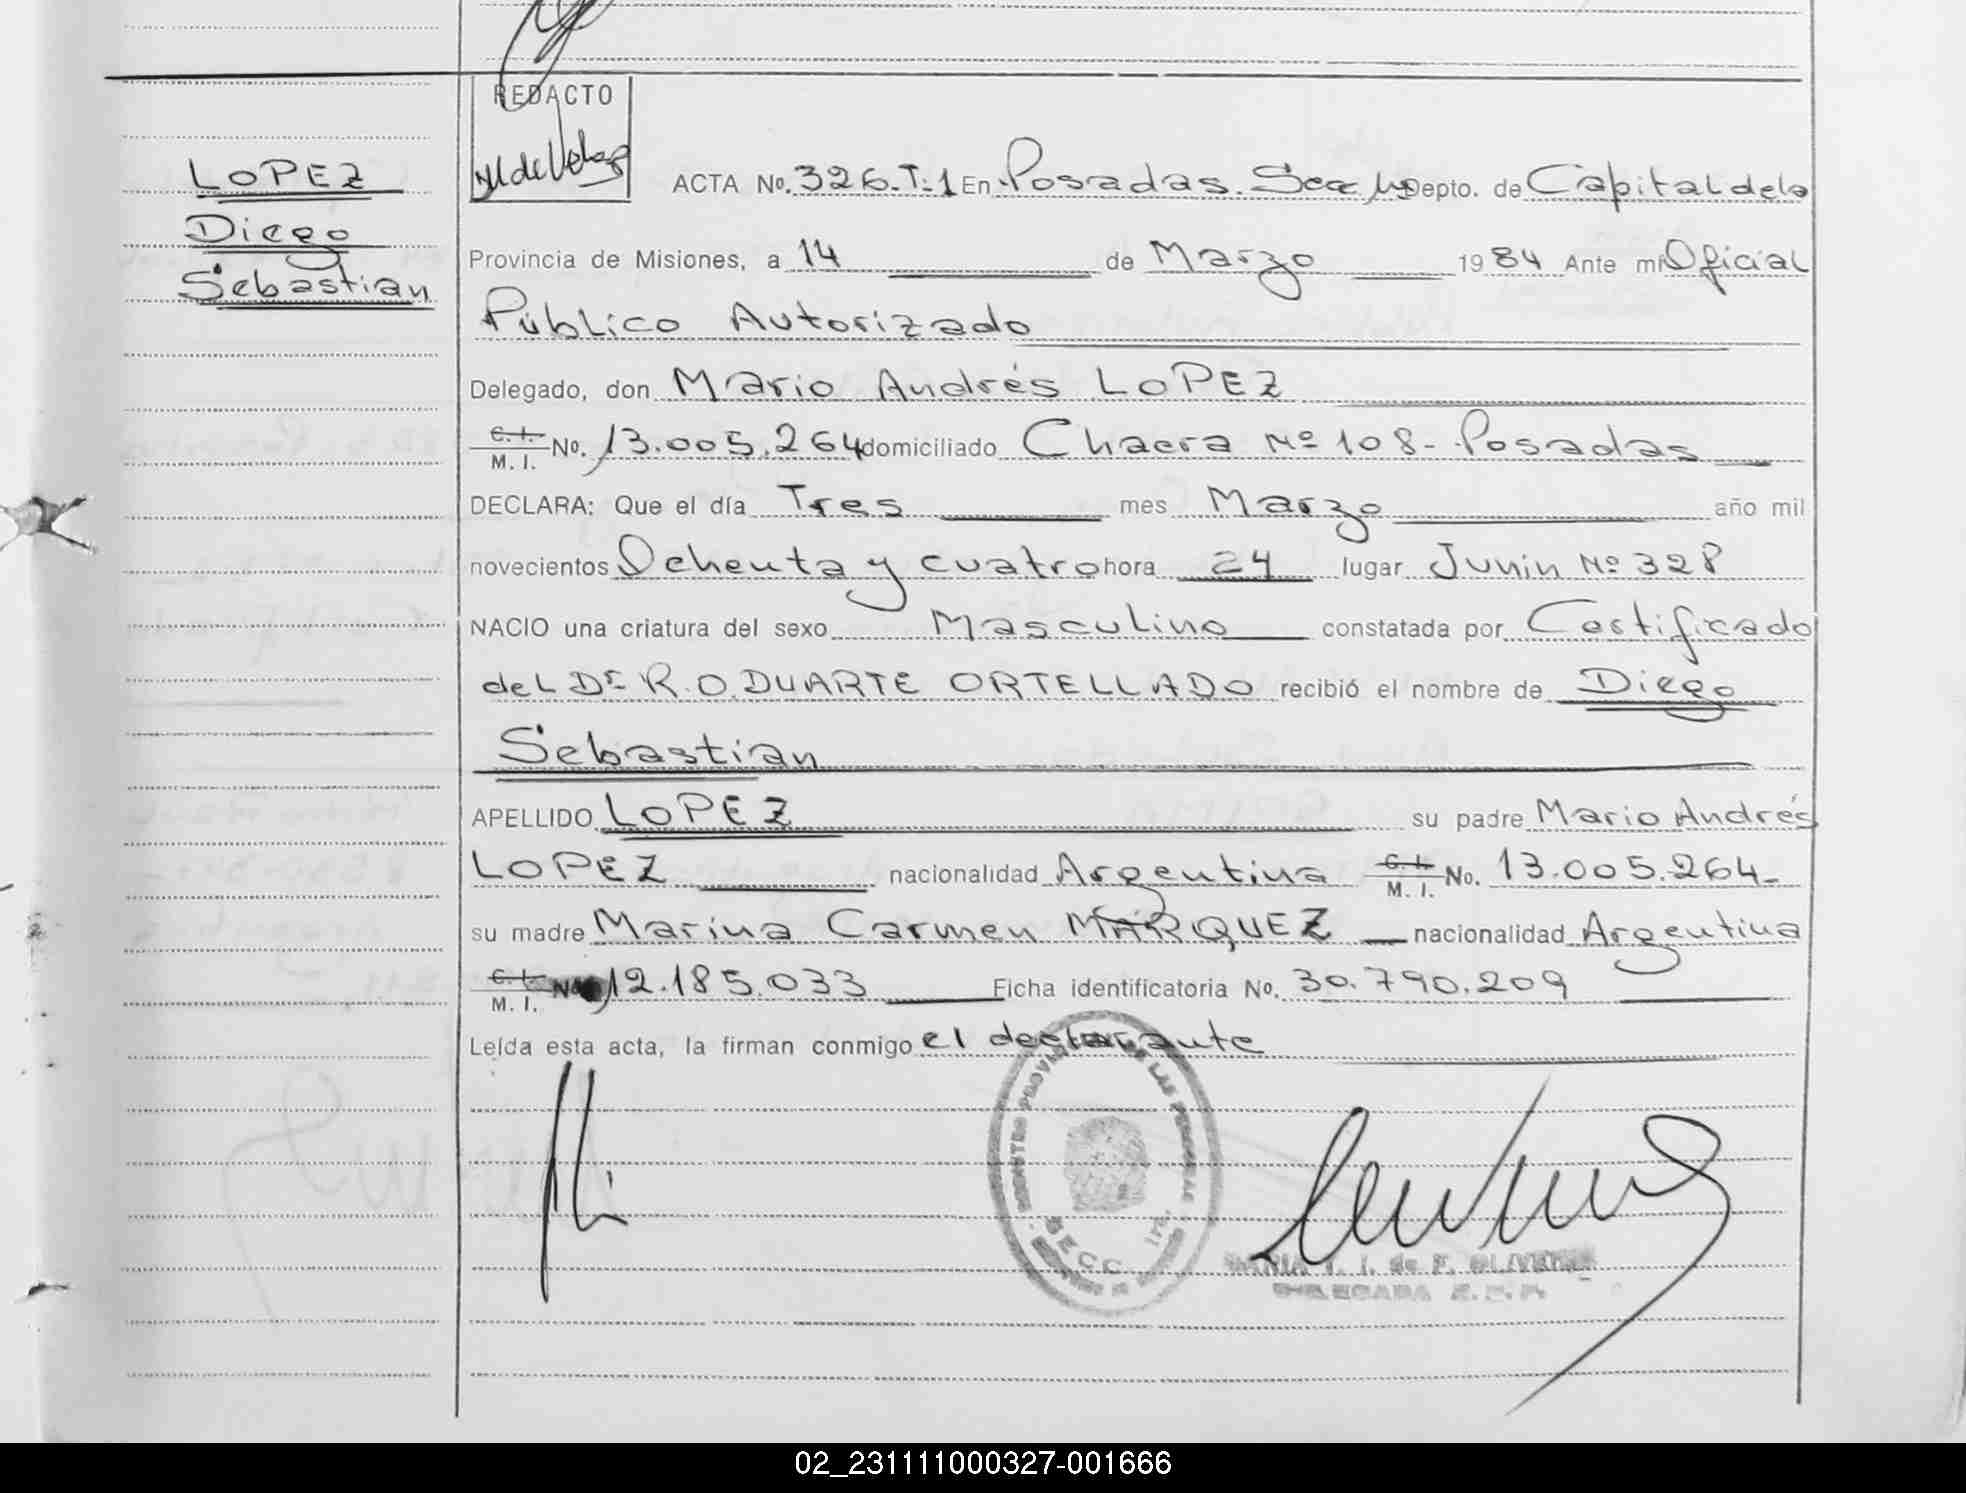 REDACTO
LOPEZ
Diego
Sebastian
ACTA No. 326.T.1 En Posadas. Secc Depto. de Capital de la
Provincia de Misiones, a 14 de Marzo 1984 Ante mi Oficial
Público Autorizado
Delegado, don Mario Andrés LOPEZ
C. I.
M. I. No. 13.005.264 domiciliado Chacra Nº 108 - Posadas
DECLARA: Que el día Tres mes Marzo año mil
novecientos Ochenta y cuatro hora 24 lugar Junin Nº 328
NACIO una criatura del sexo Masculino constatada por Certificado
del Dr R.O. DUARTE ORTELLADO recibió el nombre de Diego
Sebastian
APELLIDO LOPEZ su padre Mario Andrés
LOPEZ nacionalidad Argentina C. I. M. I. No. 13.005.264-
su madre Marina Carmen MARQUEZ nacionalidad Argentina
C. I.
M. I. No 12.185.033 Ficha identificatoria No. 30.790.209
Leída esta acta, la firman conmigo el declarante
REGISTRO PROVINCIAL DE LAS PERSONAS
SECC. 1ra.
MARIA T. I. de F. OLIVEIRA
DELEGADA R.P.P.
02_231111000327-001666